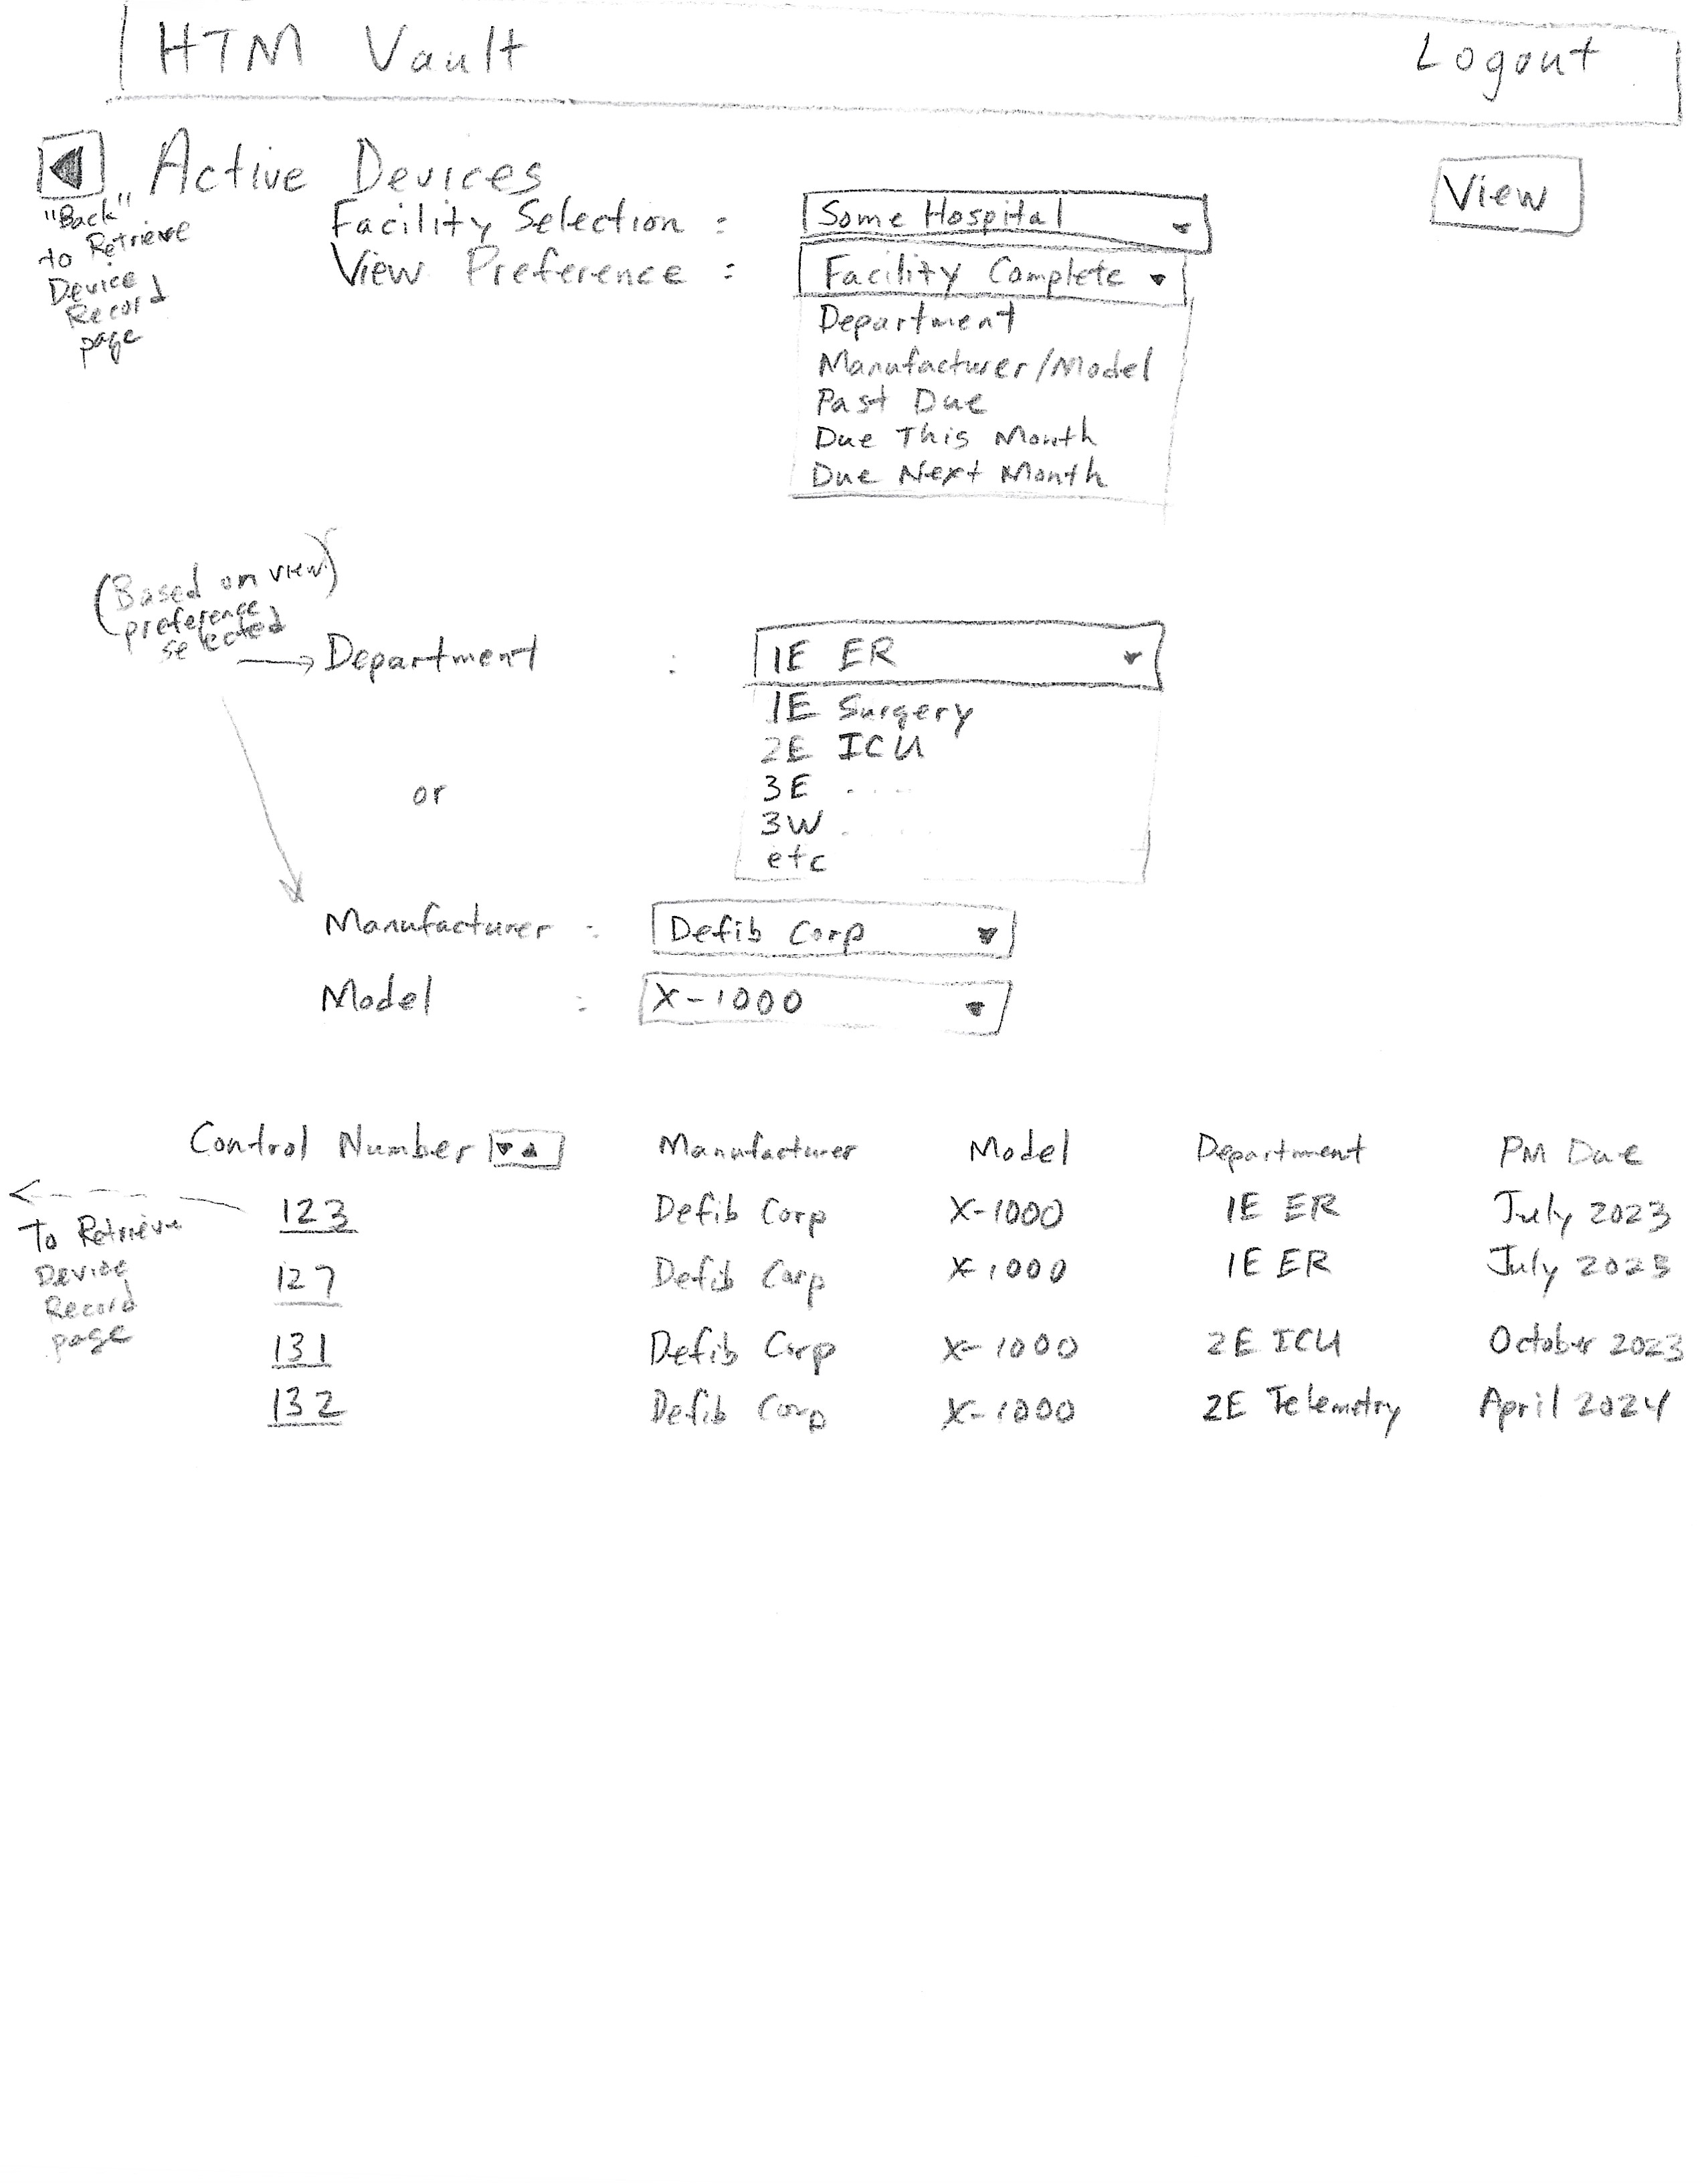 HTM Vault Logout
Active Devices View
"Back"
to Retrieve
Device
Record
page
Facility Selection : Some Hospital
View Preference : Facility Complete
Department
Manufacturer/Model
Past Due
Due This Month
Due Next Month
(Based on view)
preference
selected
Department : 1E ER
1E Surgery
2E ICU
3E ....
3W ....
etc
or
Manufacturer : Defib Corp
Model : X-1000
Control Number Manufacturer Model Department PM Due
123 Defib Corp X-1000 1E ER July 2023
127 Defib Corp X-1000 1E ER July
131 Defib Corp X-1000 2E ICU October 2023
132 Defib Corp X-1000 2E Telemetry April 2024
To Retrieve
Device
Record
page